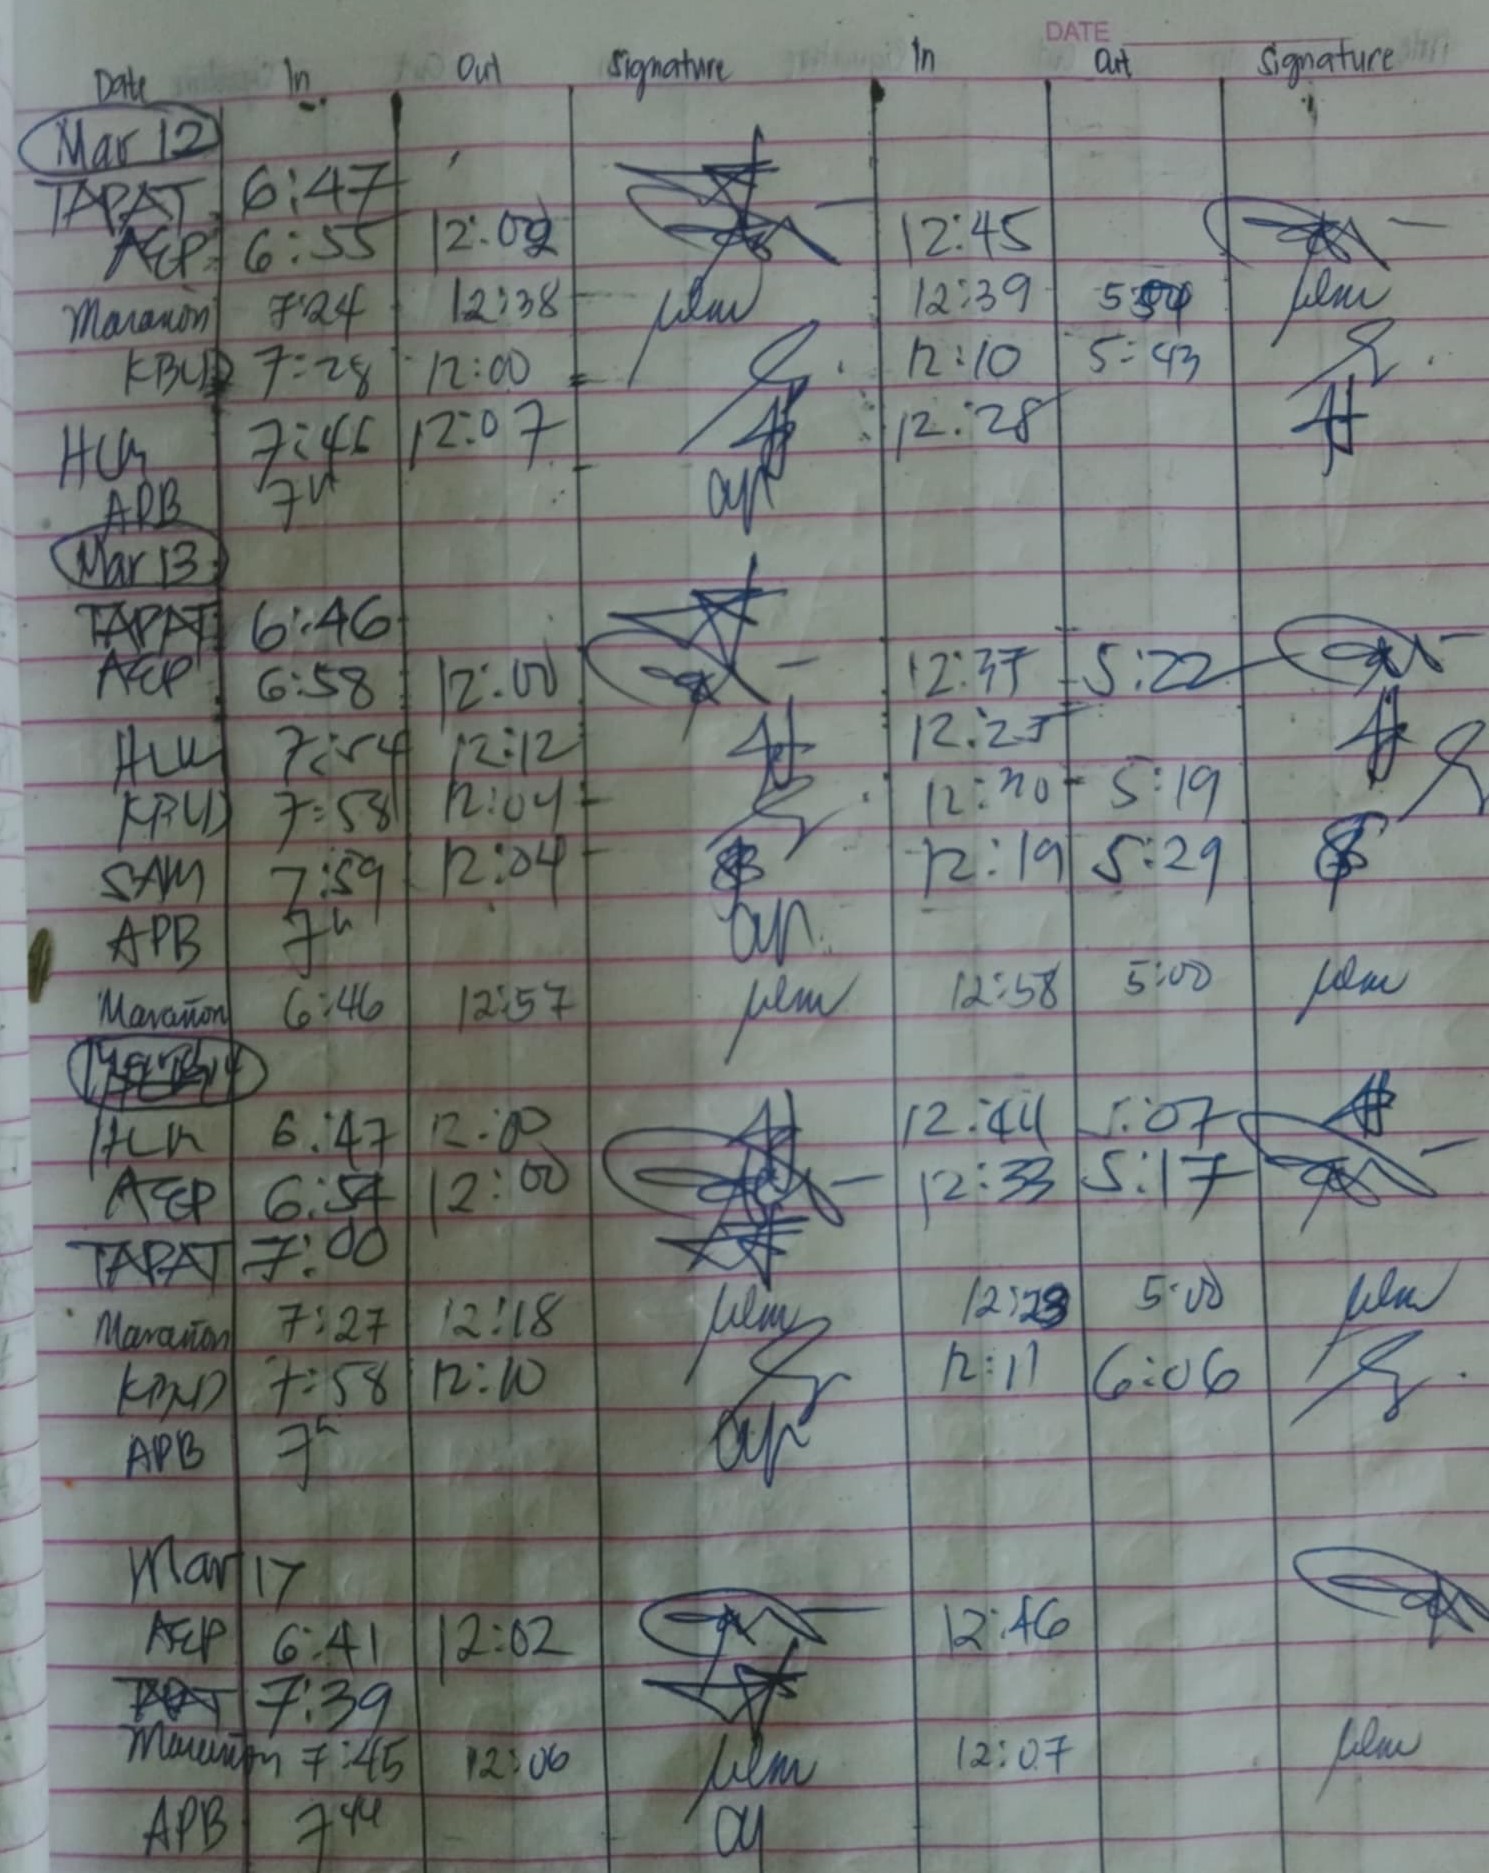 DATE
Date In Out Signature In Out Signature
Mar 12
TAPAT 6:47
AEP 6:55 12:02 12:45
Marañon 7:24 12:38 12:39
KBUD 7:28 12:00 12:10 5:43
7:46 12:07 12:28
APB
Mar 13
TAPAT 6:46
AEP 6:58 12:00 12:37 5:22
7:54 12:12 12:25
KBUD 7:58 12:04 12:20 5:19
SAM 7:59 12:04 12:19 5:29
APB
Marañon 6:46 12:57 12:58 5:00
6:47 12:00 12:44 5:07
AEP 6:54 12:00 12:33 5:17
TAPAT 7:00
Marañon 7:27 12:18 5:00
KBUD 7:58 12:10 12:11 6:06
APB
Mar 17
AEP 6:41 12:02 12:46
TAPAT 7:39
Marañon 7:45 12:06 12:07
APB 7 44